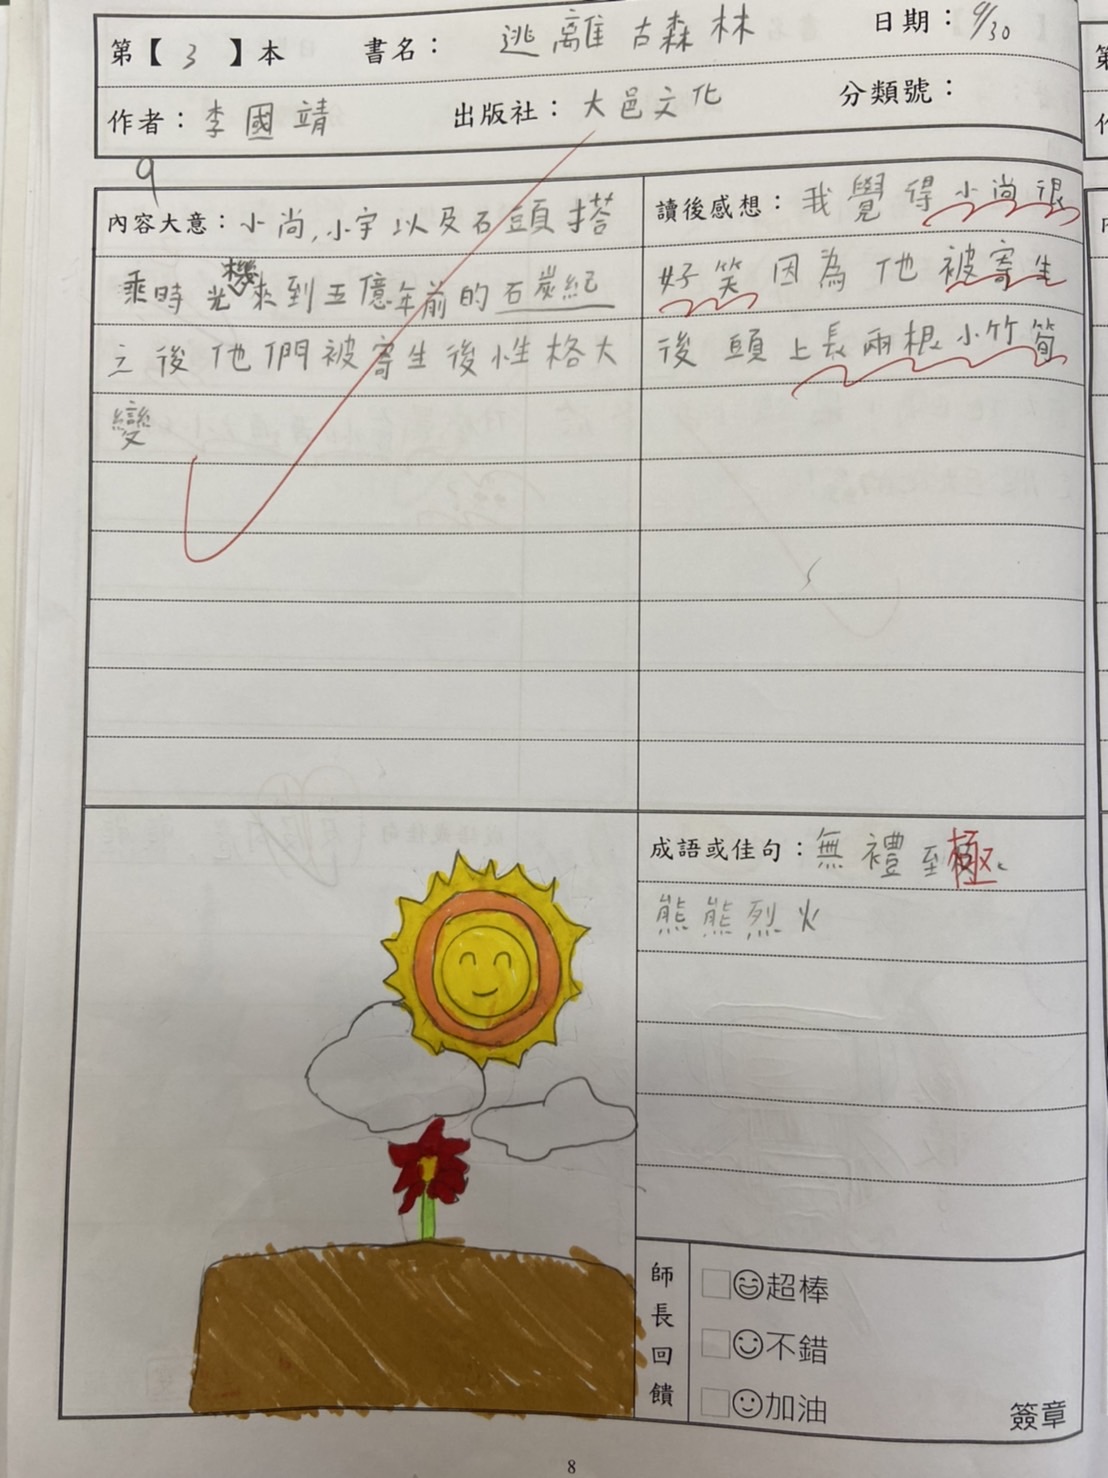 第【 3 】本 書名： 逃離古森林 日期：9/30
作者：李國靖 出版社：大邑文化 分類號：
9
內容大意：小尚,小宇以及石頭搭
乘時光機來到五億年前的石炭紀
之後他們被寄生後性格大
變
讀後感想：我覺得小尚很
好笑因為他被寄生
後頭上長兩根小竹筍
成語或佳句：無禮至極、
熊熊烈火
師長回饋
超棒
不錯
加油
簽章
8